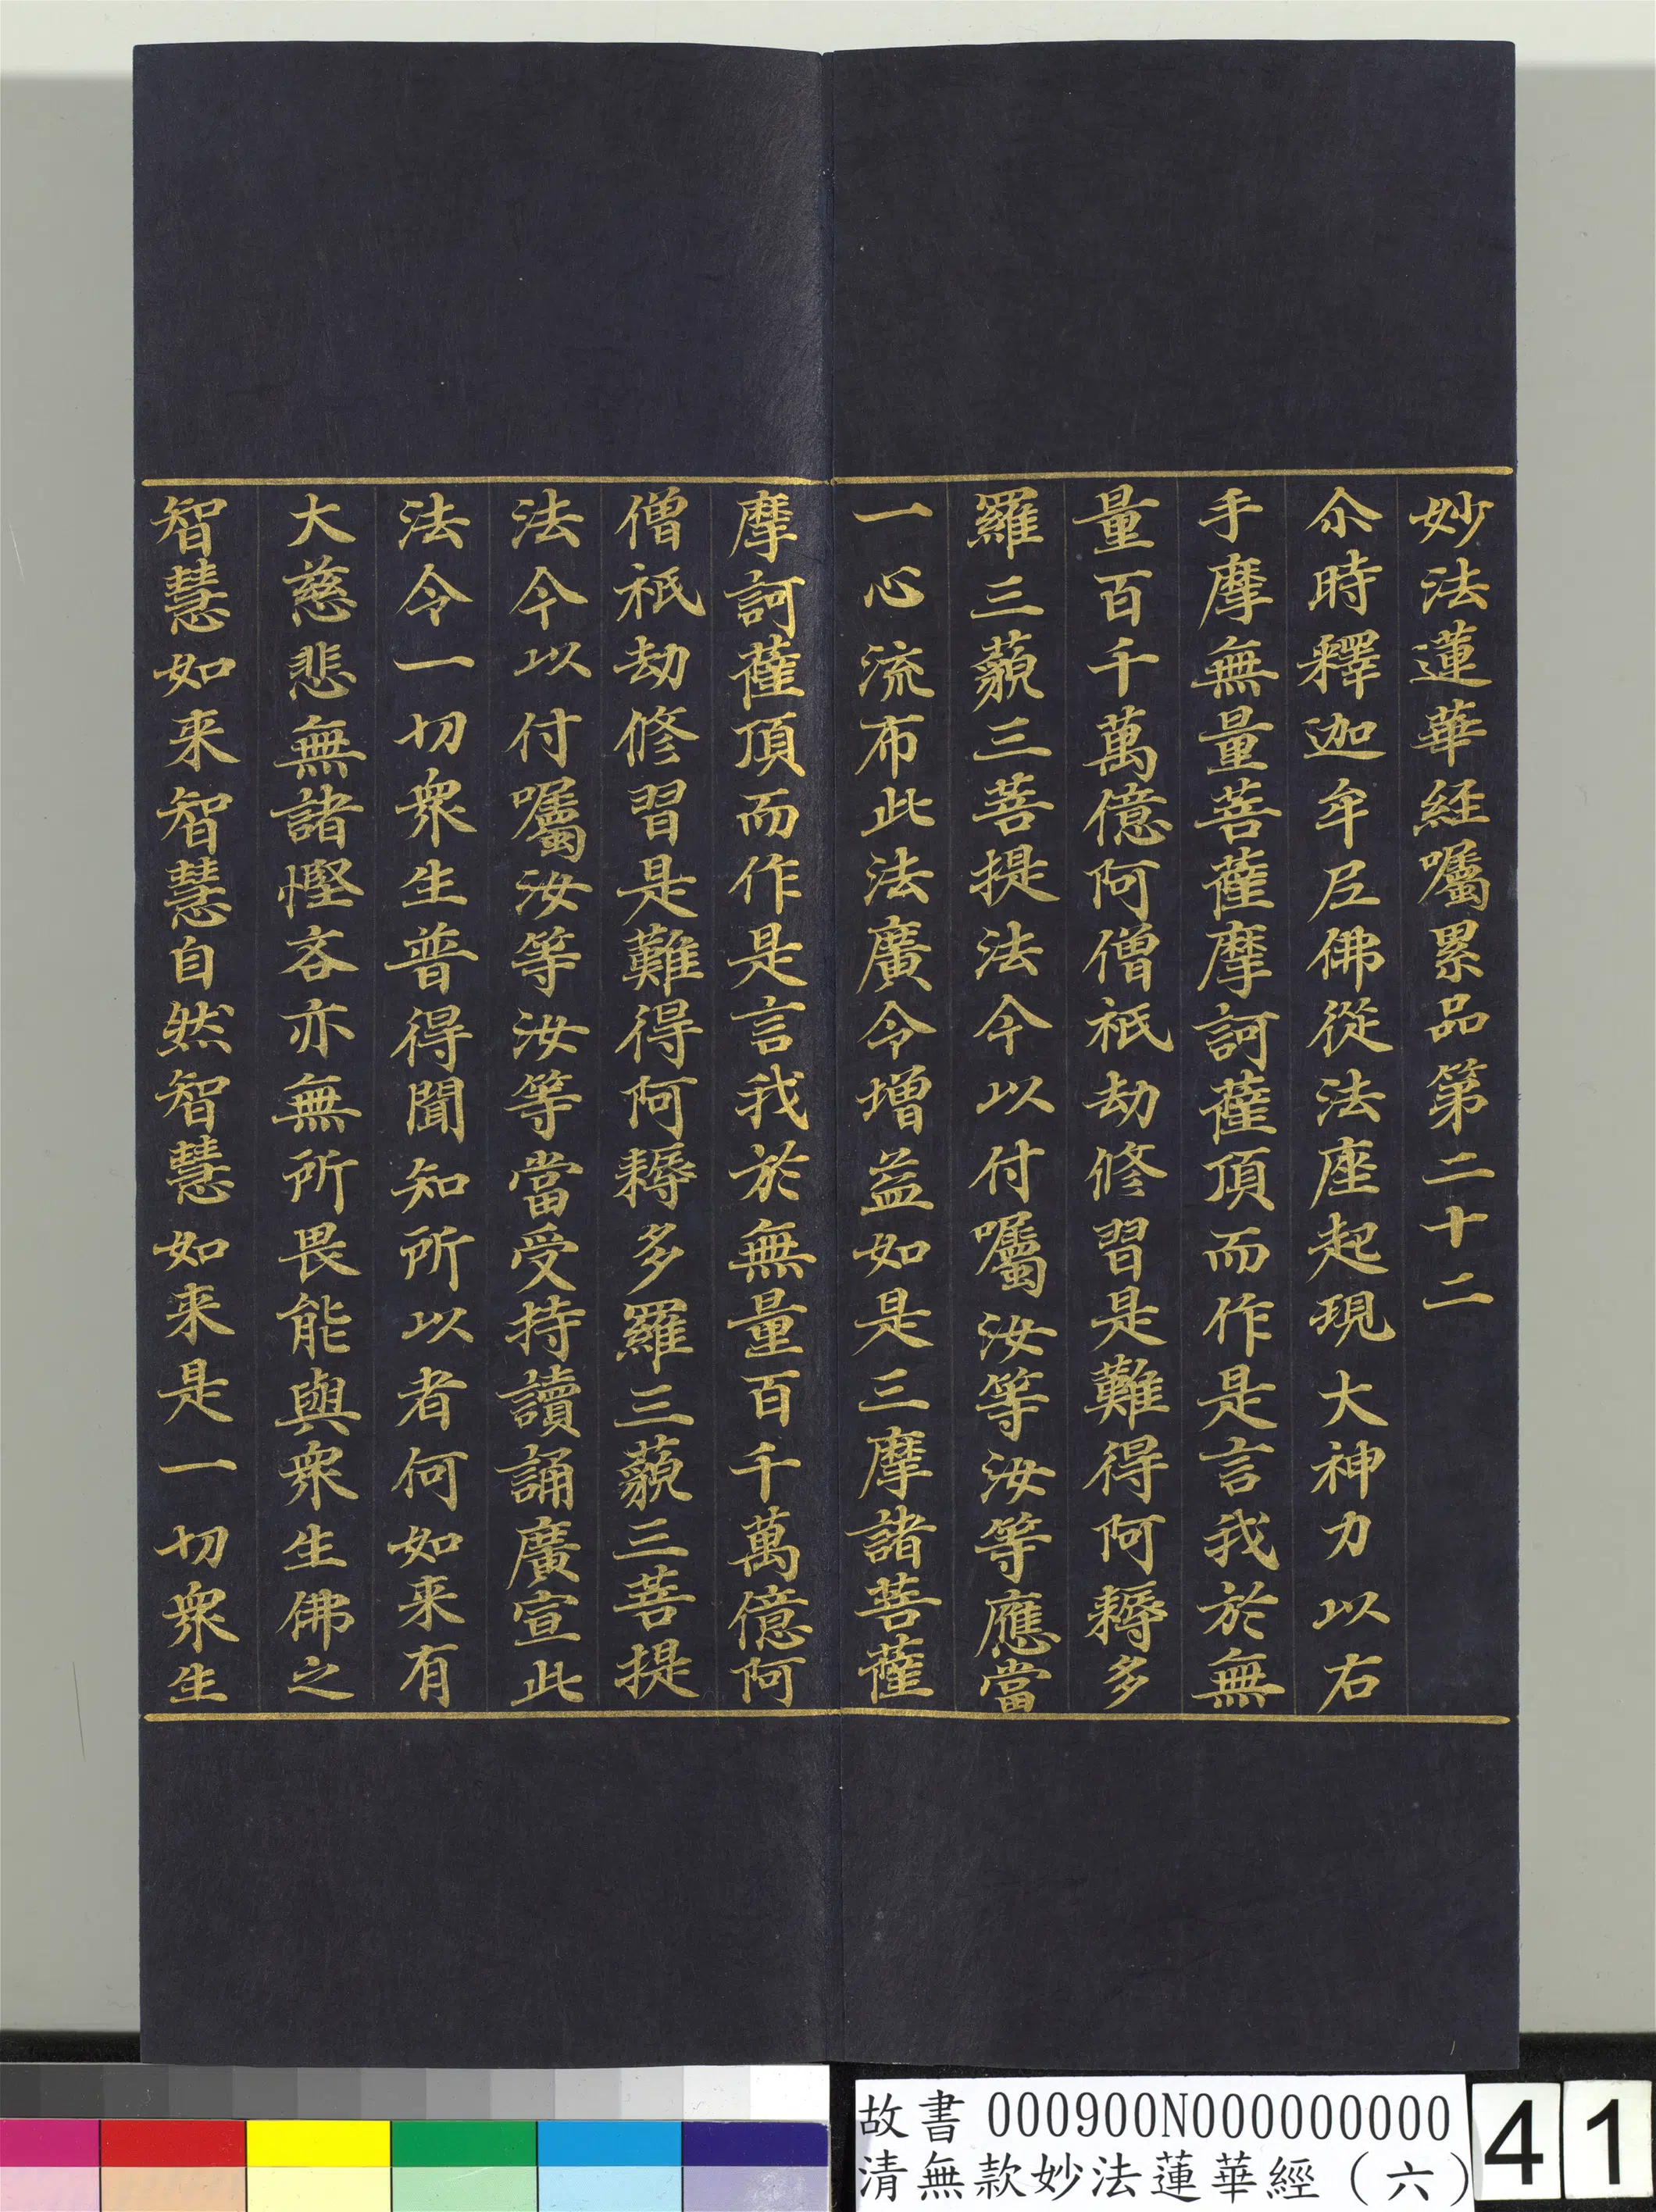 妙法蓮華經囑累品第二十二
尒時釋迦牟尼佛從法座起現大神力以右
手摩無量菩薩摩訶薩頂而作是言我於無
量百千萬億阿僧祇劫修習是難得阿耨多
羅三藐三菩提法今以付囑汝等汝等應當
一心流布此法廣令增益如是三摩諸菩薩
摩訶薩頂而作是言我於無量百千萬億阿
僧祇劫修習是難得阿耨多羅三藐三菩提
法今以付囑汝等汝等當受持讀誦廣宣此
法令一切眾生普得聞知所以者何如来有
大慈悲無諸慳吝亦無所畏能與眾生佛之
智慧如来智慧自然智慧如来是一切眾生
故書 000900N000000000
清無款妙法蓮華經（六）
41